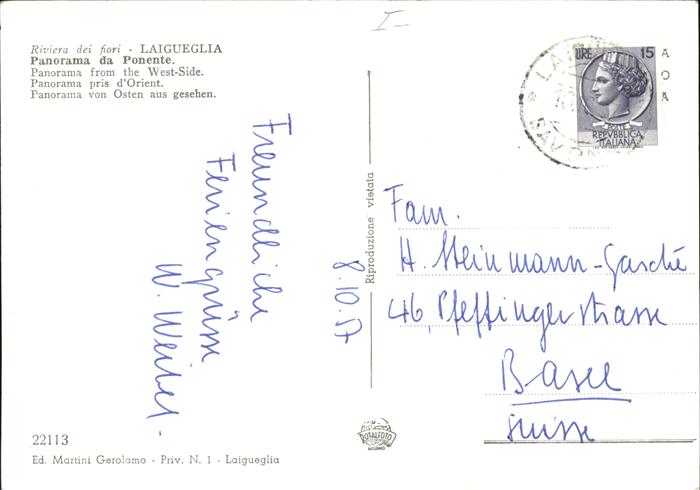 I-
Riviera dei fiori - LAIGUEGLIA
Panorama da Ponente.
Panorama from the West-Side.
Panorama pris d'Orient.
Panorama von Osten aus gesehen.
Freundliche
Feriengrüsse
W. Weibel.
8.10.57
Riproduzione vietata
LIRE 15
POSTE
REPVBBLICA
ITALIANA
A
O
A
Fam.
H. Steinmann-Gasché
46, Pfeffingerstrasse
Basel
Suisse
22113
Ed. Martini Gerolamo - Priv. N. 1 - Laigueglia
ROTALFOTO
MILANO